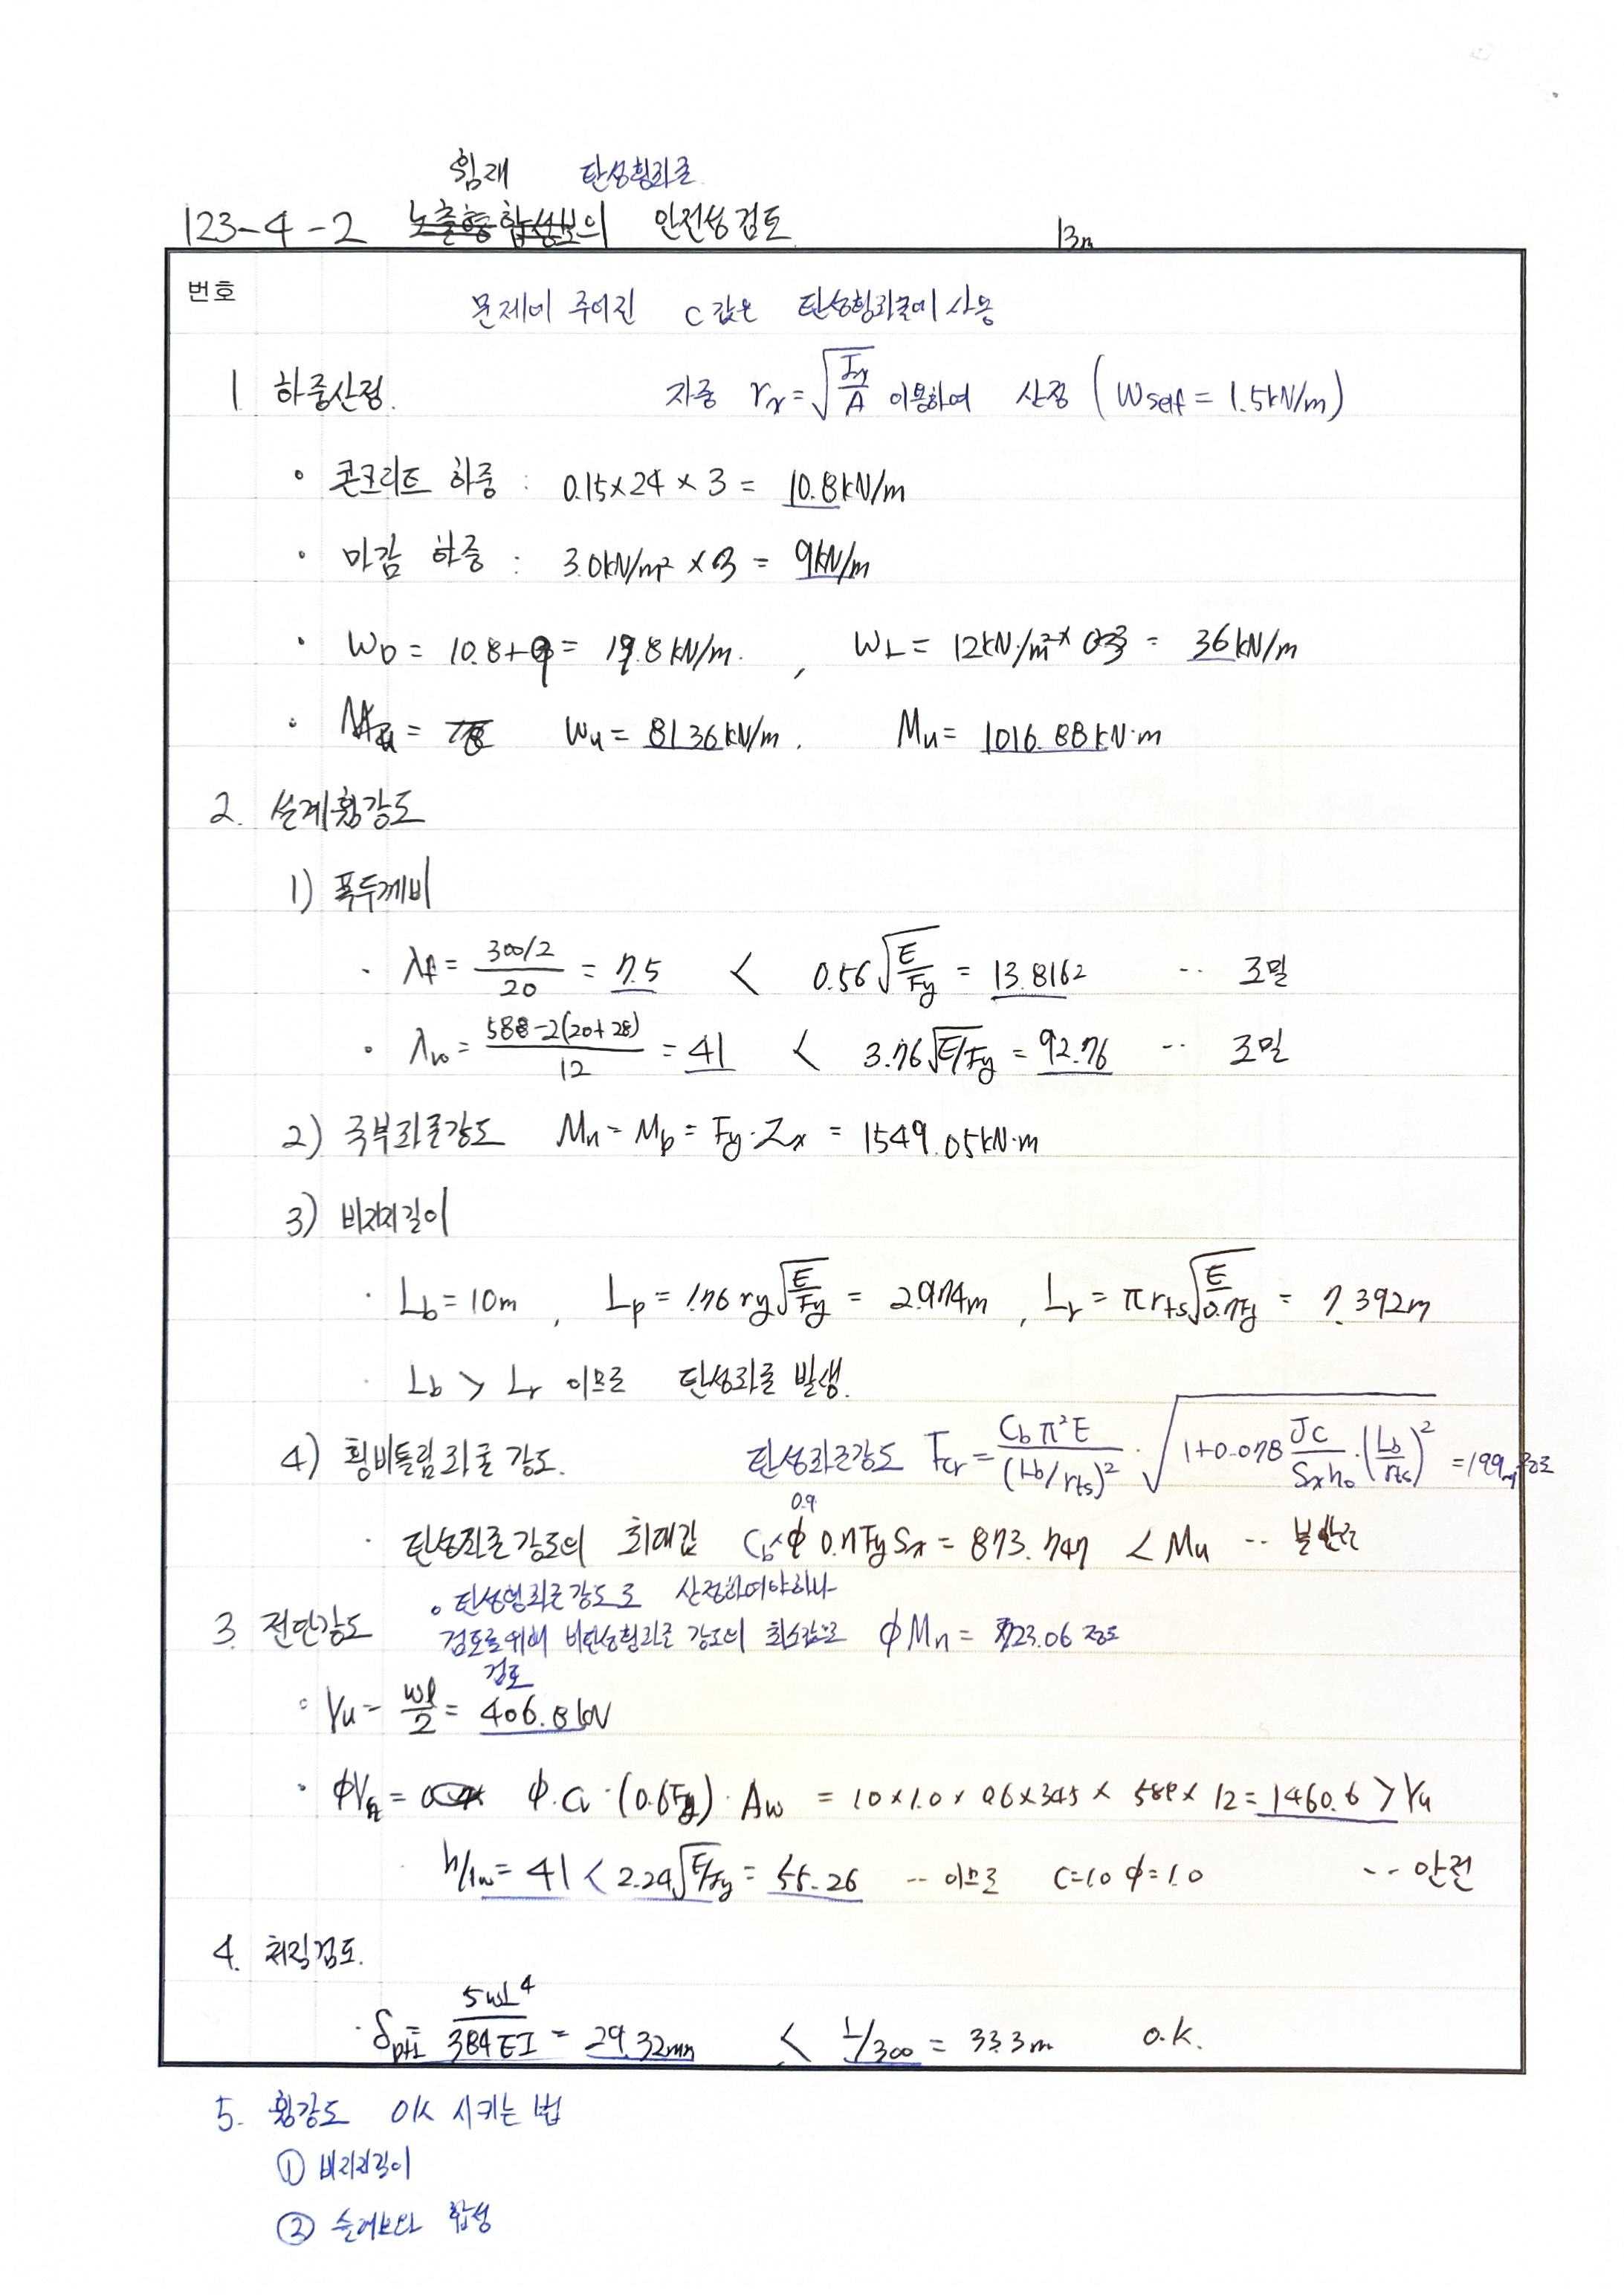 휨재 탄성횡좌굴
123-4-2 노출형 합성보의 안전성검토 13m
번호
문제에 주어진 C값은 탄성횡좌굴에 사용
1 하중산정. 자중 rx=√(Ix/A) 이용하여 산정 (Wself = 1.5kN/m)
• 콘크리트 하중 : 0.15×24×3 = 10.8kN/m
• 마감 하중 : 3.0kN/m² ×3 = 9kN/m
• WD = 10.8+9 = 19.8kN/m. , WL = 12kN/m²×3 = 36kN/m
• Wu = 81.36kN/m, Mu = 1016.88kN·m
2. 설계휨강도
1) 폭두께비
· λf = (300/2)/20 = 7.5 < 0.56√(E/Fy) = 13.8162 -- 조밀
• λw = (588-2(20+28))/12 = 41 < 3.76√(E/Fy) = 92.76 -- 조밀
2) 국부좌굴강도 Mn = Mp = Fy·Zx = 1549.05kN·m
3) 비지지길이
· Lb = 10m , Lp = 1.76ry√(E/Fy) = 2.974m , Lr = πrts√(E/0.7Fy) = 7.392m
· Lb > Lr 이므로 탄성좌굴 발생.
4) 횡비틀림좌굴 강도. 탄성좌굴강도 Fcr = Cbπ²E/(Lb/rts)² · √(1+0.078 Jc/Sxho·(Lb/rts)²) = 199 정도
0.9
· 탄성좌굴강도의 최대값 Cb×φ 0.7FySx = 873.747 < Mu -- 불안전
• 탄성횡좌굴강도로 산정하여야하나
3. 전단강도 검토를위해 비탄성횡좌굴 강도의 최소값으로 φMn = 723.06 정도
검토
• Vu = wl/2 = 406.8kN
• φVn = φ·Cv·(0.6Fy)·Aw = 1.0×1.0×0.6×345×588×12 = 1460.6 > Vu
· h/tw = 41 < 2.24√(E/Fy) = 55.26 -- 이므로 C=1.0 φ=1.0 -- 안전
4. 처짐검토.
· δD+L = 5wL⁴/384EI = 29.32mm < L/300 = 33.3m O.K.
5. 휨강도 OK 시키는 법
① 비지지길이
② 슬래브와 합성